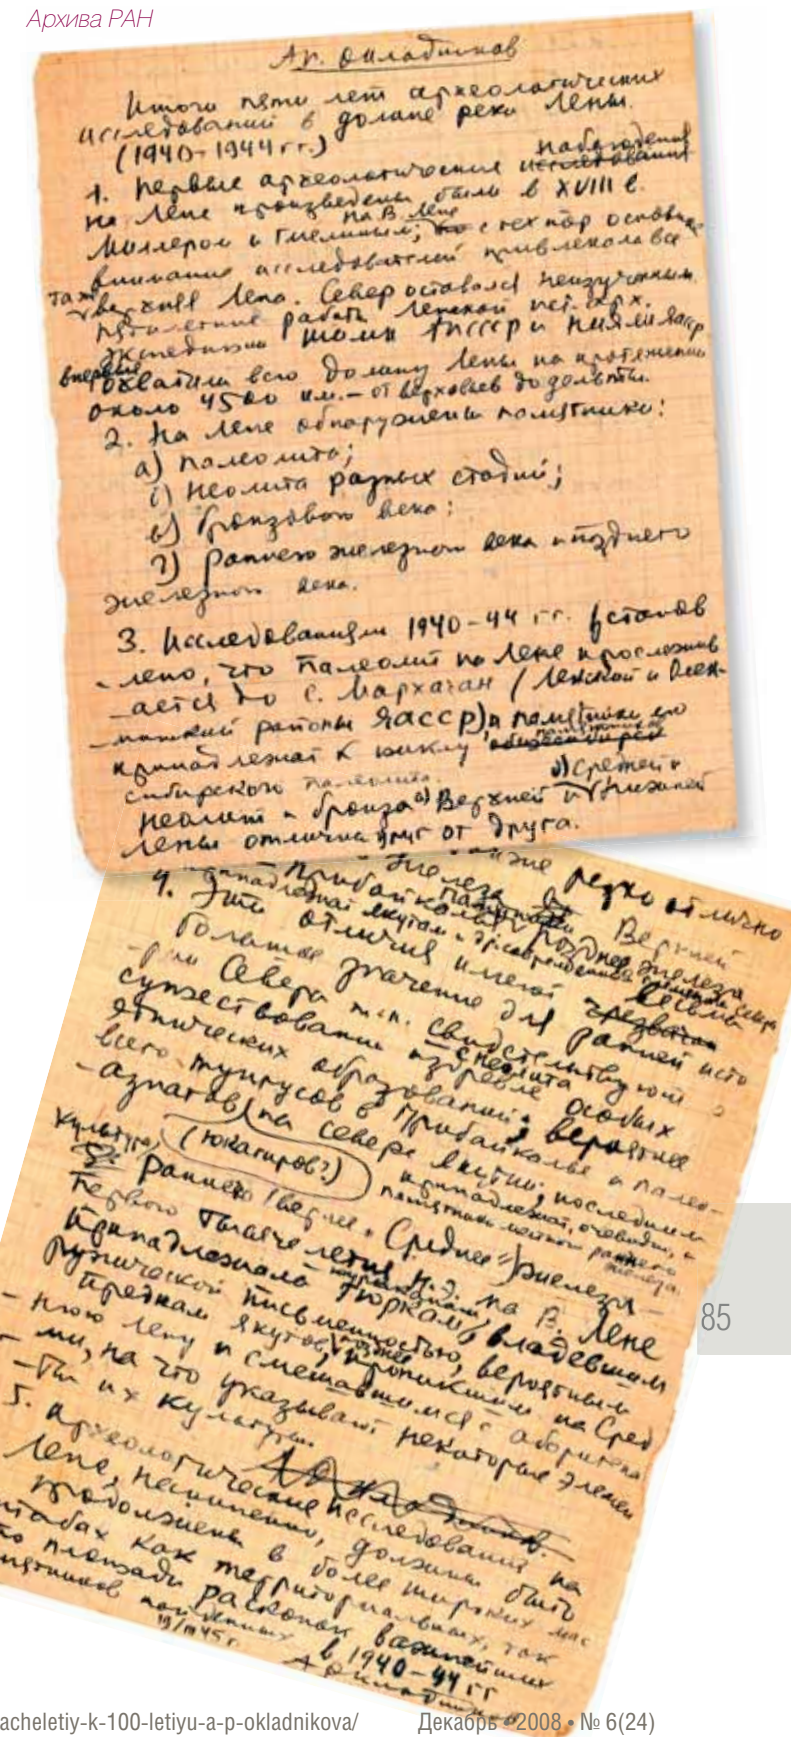 Архива РАН
Ап. Окладников
Итоги пяти лет археологических
исследований в долине реки Лены.
(1940-1944 гг.)
наблюдения
1. Первые археологические исследования
на Лене произведены были в XVIII в.
на В. Лене
Миллером и Гмелиным; но с тех пор основное
внимание исследователей привлекала все
также верхняя Лена. Север оставался неизученным.
Пятилетние работы Ленской ист. арх.
экспедиции ИИМК АН СССР и НИЯЛИ ЯАССР
впервые охватили всю долину Лены на протяжении
около 4500 км. – от верховьев до дельты.
2. На Лене обнаружены памятники:
а) палеолита;
б) неолита разных стадий;
в) бронзового века;
г) раннего железного века и позднего
железного века.
3. Исследованиями 1940-44 гг. установ
-лено, что палеолит на Лене прослежив
-ается до с. Мархачан (Ленский и Олек-
-минский районы ЯАССР) и памятники его
принадлежат к циклу
сибирского палеолита.
б) Средней и
Неолит и бронза а) Верхней и Нижней
Лены отличны друг от друга.
железа также резко отлично
Прибайкалья Верхней
памятники позднего железа
принадлежат якутам и др. современным племенам севера
4. Эти отличия имеют весьма
большое значение для ранней исто
-рии Севера т.к. свидетельствуют о
существовании издревле особых
с неолита
этнических образований: вероятнее
всего тунгусов в Прибайкалье и палео-
-азиатов на севере Якутии; последним
(юкагиров?)
принадлежат, очевидно, и
памятники местного раннего
железа.
Культура
раннего (вернее „Среднего") железа –
первого тысячелетия н.э. на В. Лене
принадлежала тюркам, владевшим
-курыканам,
рунической письменностью, вероятным
предкам якутов, позднее проникшим на Сред
-нюю Лену и смешавшимся с аборигена
-ми, на что указывают некоторые элемен
-ты их культуры.
Ап. Окладников.
5. Археологические исследования на
Лене, несомненно, должны быть
продолжены в более широких мас
штабах как территориальных, так
по площади раскопок важнейших
памятников найденных в 1940-44 гг
19/III 45 г.
А Окладников
85
acheletiy-k-100-letiyu-a-p-okladnikova/
Декабрь • 2008 • № 6(24)